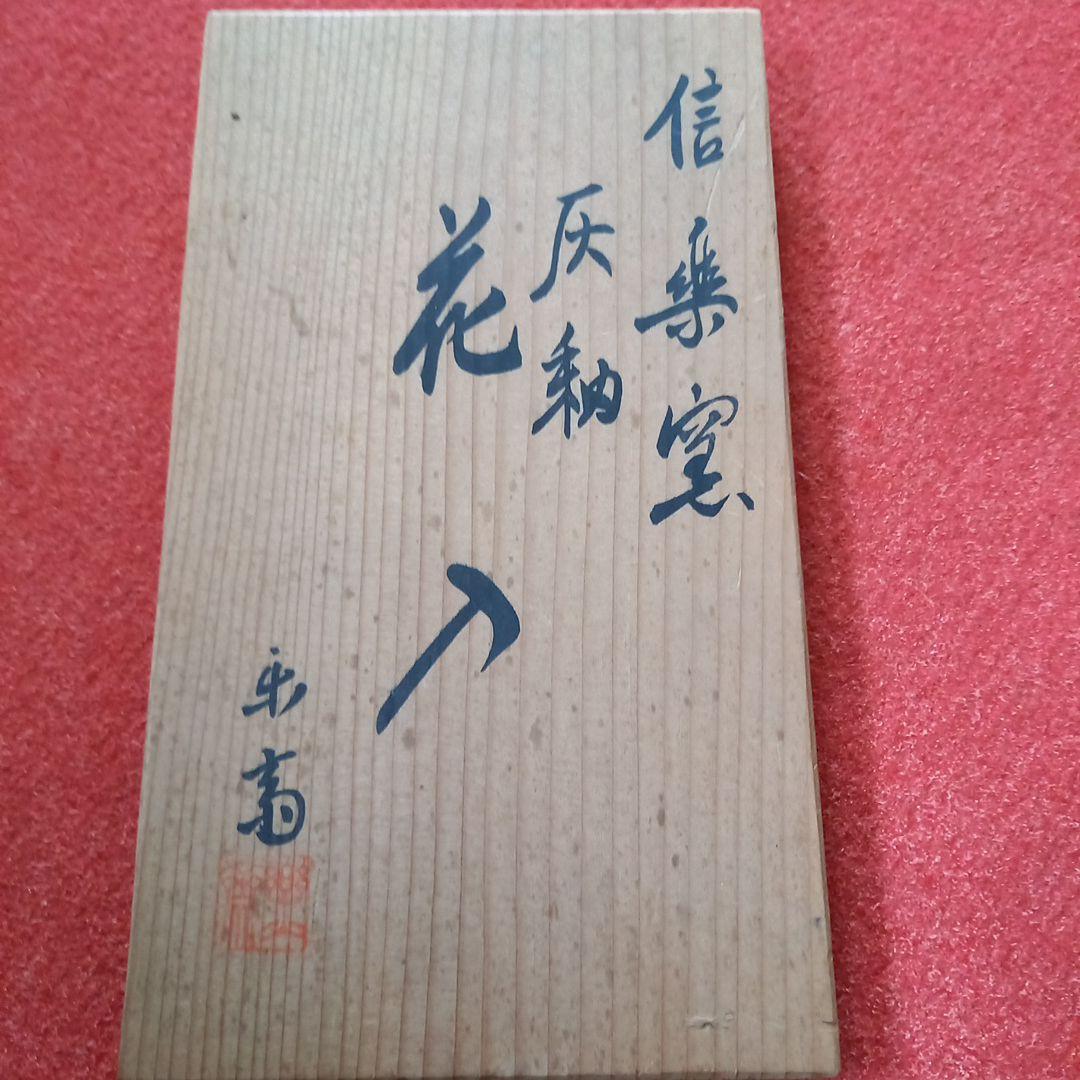 信楽窯
灰釉
花入
楽斎